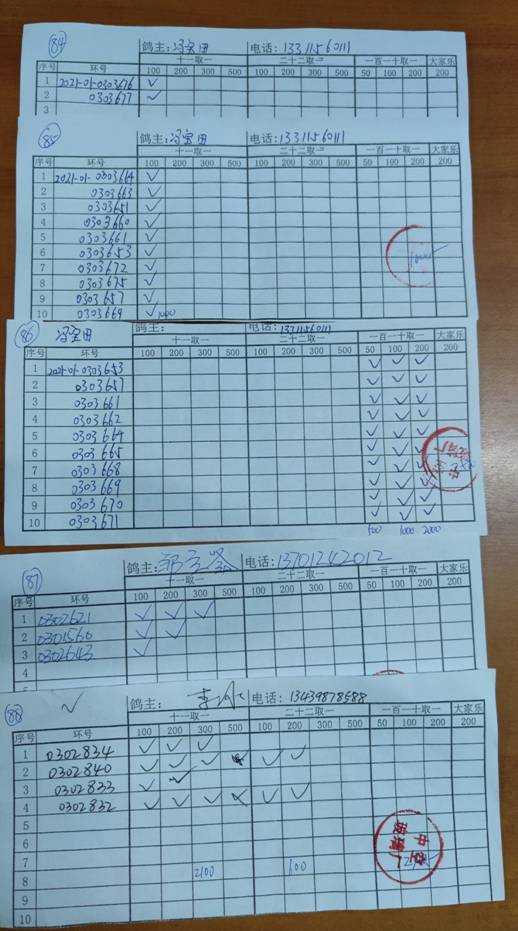 84 鸽主:冯宝田 电话:13311560111
序号 环号 十一取一 二十二取一 一百一十取一 大家乐
100 200 300 500 100 200 300 500 50 100 200 200
1 2021-01-0303676 ✓
2 0303677 ✓
3
85 鸽主:冯宝田 电话:13311560111
序号 环号 十一取一 二十二取一 一百一十取一 大家乐
100 200 300 500 100 200 300 500 50 100 200 200
1 2021-01-0303664 ✓
2 0303663 ✓
3 0303651 ✓
4 0303660 ✓
5 0303661 ✓
6 0303653 ✓
7 0303672 ✓
8 0303675 ✓
9 0303657 ✓
10 0303669 ✓ 1000
1000
86 冯宝田 鸽主: 电话:13311560111
序号 环号 十一取一 二十二取一 一百一十取一 大家乐
100 200 300 500 100 200 300 500 50 100 200 200
1 2021-01-0303653 ✓ ✓ ✓
2 0303657 ✓ ✓ ✓
3 0303661 ✓ ✓ ✓
4 0303662 ✓ ✓ ✓
5 0303664 ✓ ✓ ✓
6 0303665 ✓ ✓ ✓
7 0303668 ✓ ✓ ✓
8 0303669 ✓ ✓ ✓
9 0303670 ✓ ✓ ✓
10 0303671 ✓ ✓ ✓
500 1000 2000
87 鸽主: 电话:13701242012
序号 环号 十一取一 二十二取一 一百一十取一 大家乐
100 200 300 500 100 200 300 500 50 100 200 200
1 0302621 ✓ ✓ ✓
2 0301560 ✓ ✓
3 0302643 ✓
4
5
88 ✓ 鸽主: 李 电话:13439878588
序号 环号 十一取一 二十二取一 一百一十取一 大家乐
100 200 300 500 100 200 300 500 50 100 200 200
1 0302834 ✓ ✓ ✓
2 0302840 ✓ ✓ ✓ ✓ ✓ ✓
3 0302833 ✓ ✓
4 0302832 ✓ ✓ ✓ ✓ ✓ ✓
5
6
7
8 2100 600
9
10
中空
玻璃厂